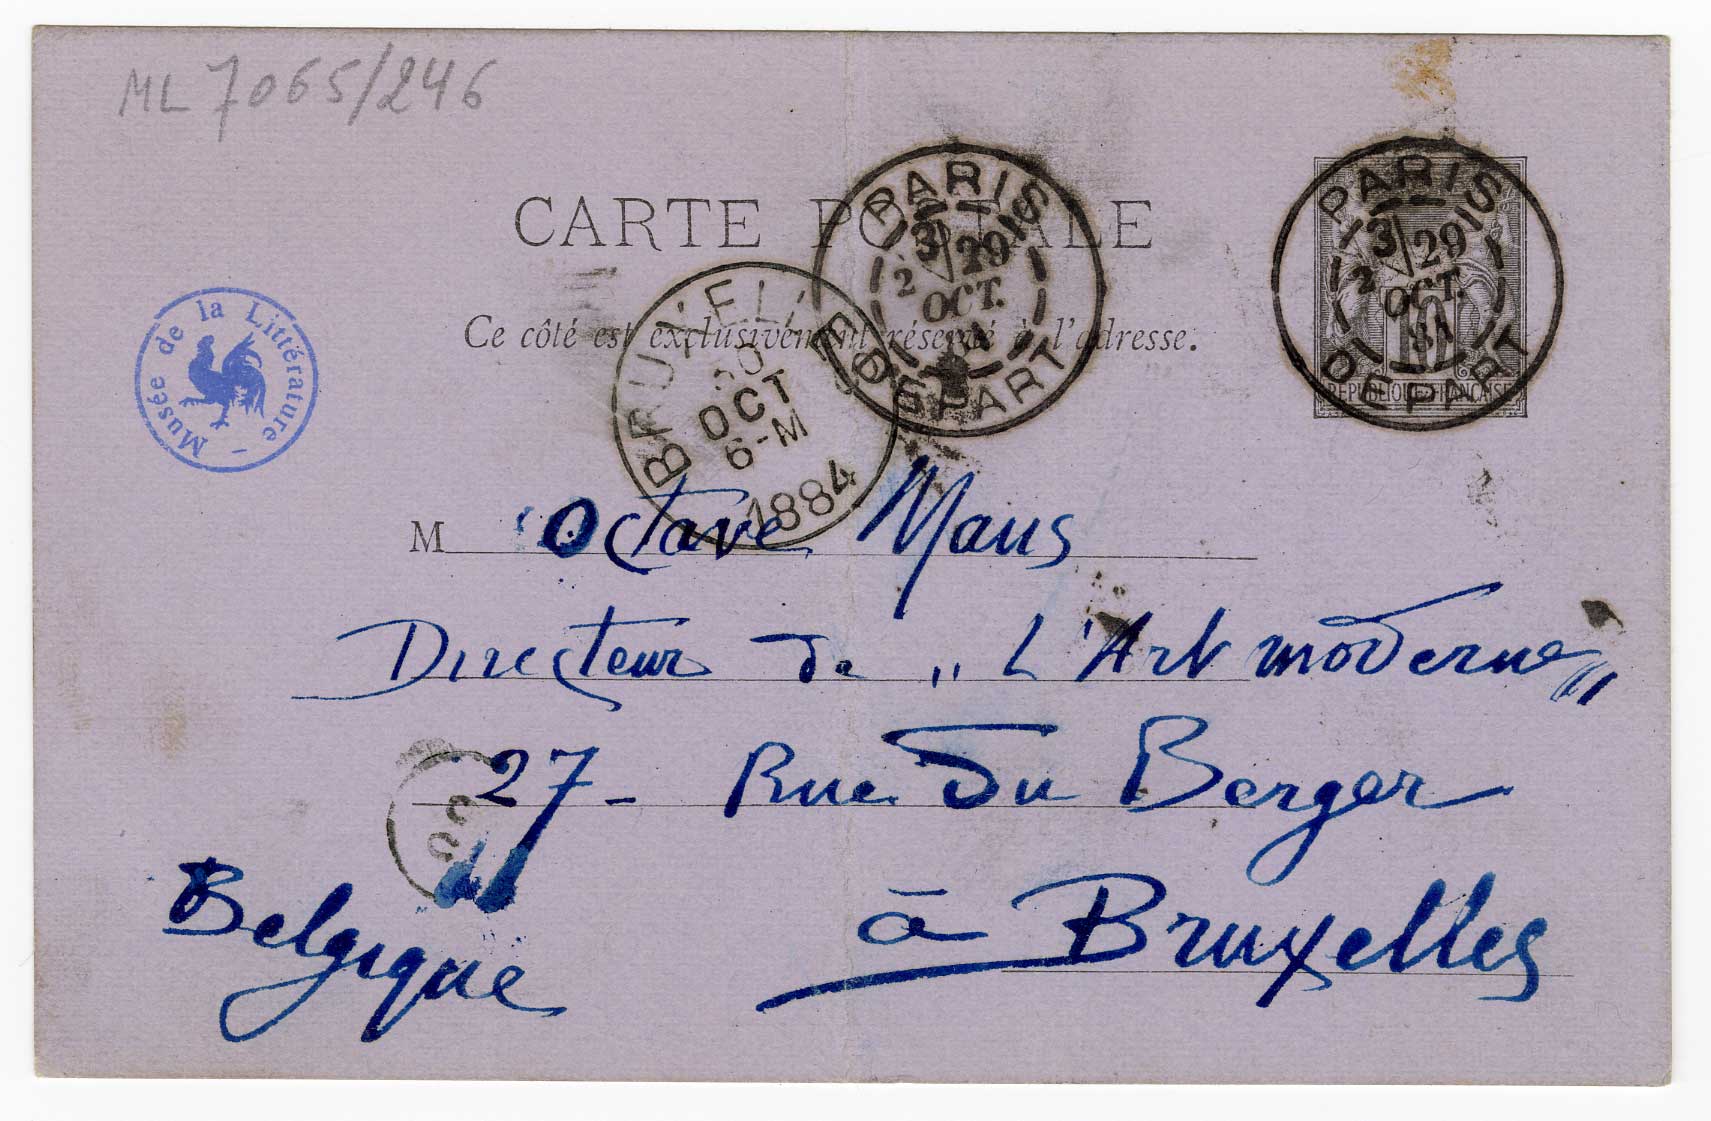 ML 7065/246
CARTE POSTALE
Ce côté est exclusivement réservé à l'adresse.
PARIS
3
2 29
OCT.
DÉPART
PARIS
3
2 29
OCT.
84
DÉPART
RÉPUBLIQUE FRANÇAISE
Musée de la Littérature -
BRUXELLES
30
OCT
6-M
1884
M Octave Maus
Directeur de „ L'Art moderne „
27 - Rue du Berger
à Bruxelles
Belgique